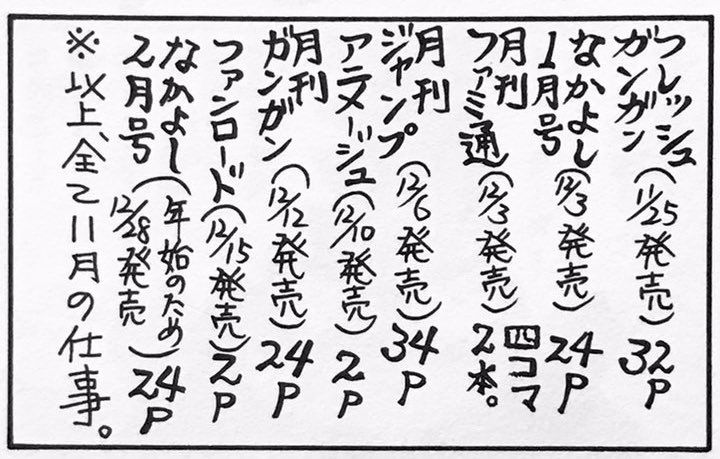 フレッシュ
ガンガン(11/25発売)32P
なかよし
1月号(12/3発売)24P
月刊
ファミ通(12/3発売)四コマ
2本。
月刊
ジャンプ(12/6発売)34P
アニメージュ(12/10発売)2P
月刊
ガンガン(12/12発売)24P
ファンロード(12/15発売)2P
なかよし
2月号(年始のため
12/28発売)24P
※以上、全て11月の仕事。